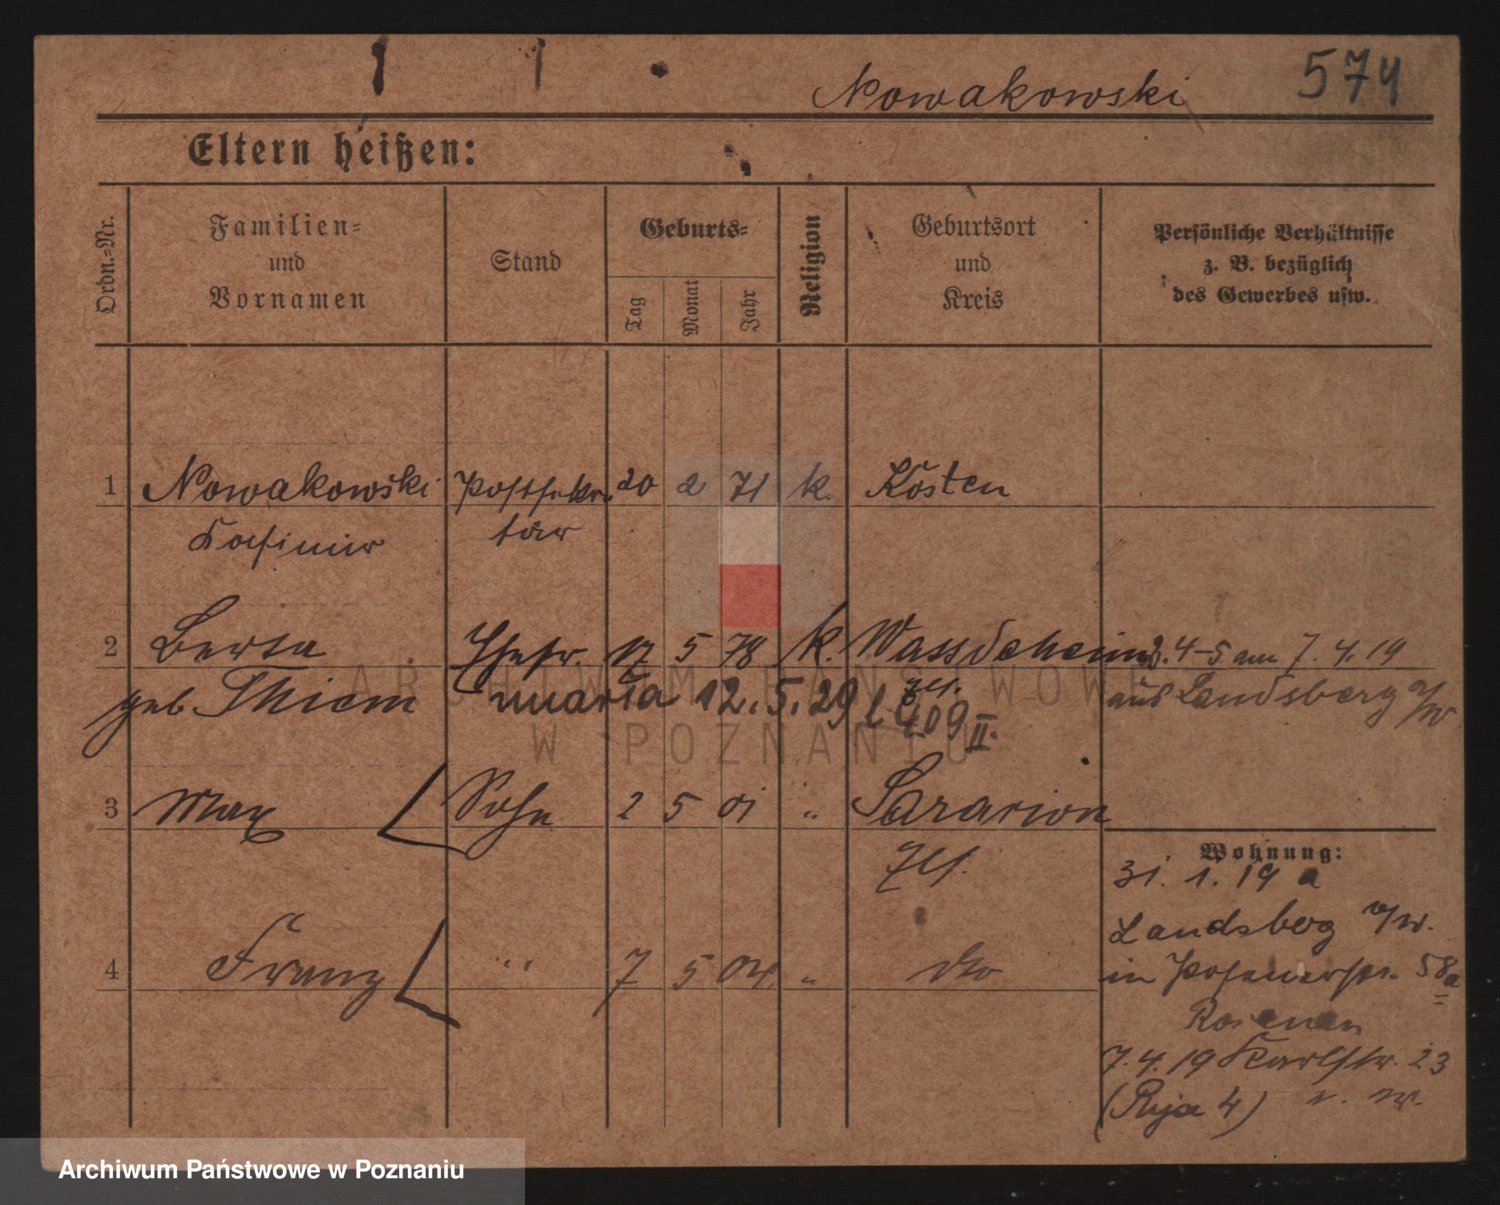 Nowakowski 574
Eltern heißen:
Ordn.-Nr.
Familien-
und
Vornamen
Stand
Geburts-
Tag
Monat
Jahr
Religion
Geburtsort
und
Kreis
Persönliche Verhältnisse
z. B. bezüglich
des Gewerbes usw.
1 Nowakowski Postsekre 20 2 71 k. Kosten
Kasimir tär
2 Berta Ehefr. 17 5 78 k. 2.4-5 am 7.4.19
geb. Thiem maria 12.5.29 aus Landsberg a/W
409 II.
3 Max Sohn 2 5 01 "
4 Franz " 7 5 "
Wohnung:
31. 1. 19 a
Landsberg a/W.
in Posenerstr. 58a
7.4.19 Karlstr. 23
(Ryja 4)
ARCHIWUM PAŃSTWOWE
W POZNANIU
Archiwum Państwowe w Poznaniu